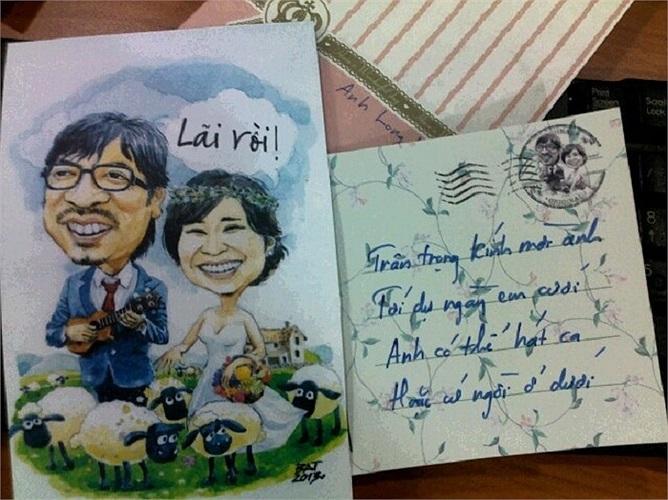 Lãi rồi!
BAT
2013.
Anh Long
Trân trọng kính mời anh
Tới dự ngày em cưới
Anh có thể hát ca
Hoặc cứ ngồi ở dưới
Print
Screen
Scro
Loc